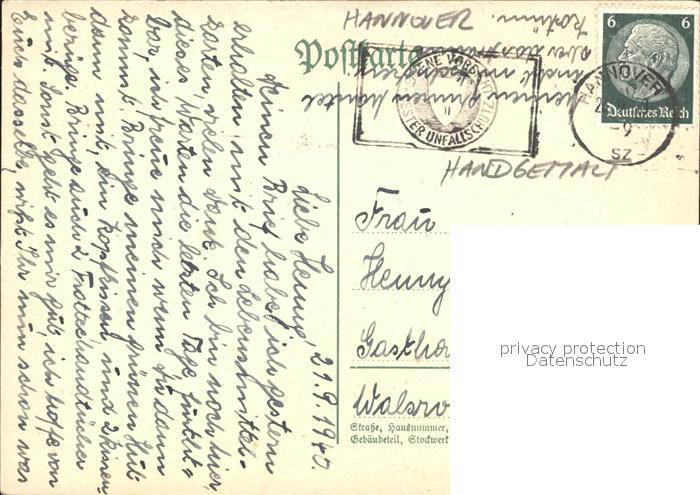 HANNOVER
Postkarte
6 6
Deutsches Reich
HANNOVER
9
SZ
BESTER UNFALLSCHUTZ
HANDGEMALT
Frau
Henny
Walsro
Straße, Hausnummer,
Gebäudeteil, Stockwerk
privacy protection
Datenschutz
21.9.1940.
Liebe Henny,
Deinen Brief habe ich gestern
erhalten mit den Lebensmittel-
karten, vielen Dank. Ich bin noch hier,
dieses Warten die letzten Tage
bar, ich freue mich wenn Du dann
kommst. Bringe meinen grünen Hut
dann mit, ein Kopfkissen und 2 Kissen-
bezüge. Bringe auch 2 Frottehandtücher
mit. Sonst geht es mir gut, ich hoffe von
Euch dasselbe, wißt Ihr nun schon was